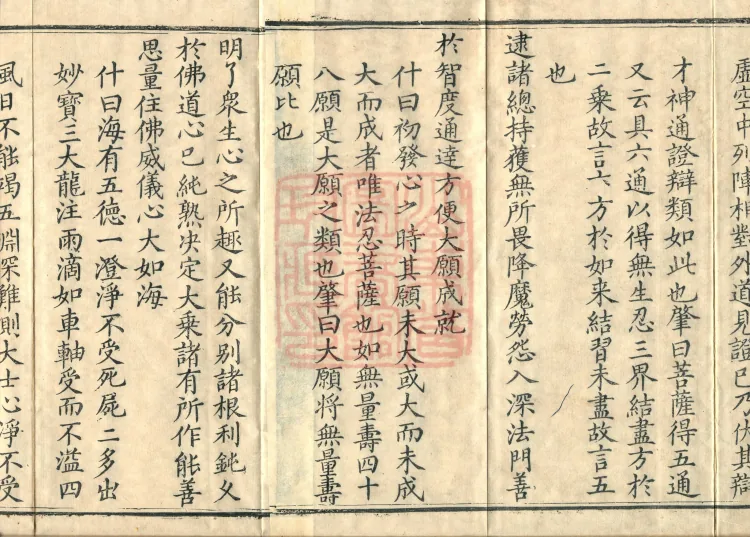 虛空中列陣相對外道見證已乃伏其辯
才神通證辯類如此也肇曰菩薩得五通
又云具六通以得無生忍三界結盡方於
二乘故言六方於如来結習未盡故言五
也
逮諸總持獲無所畏降魔勞怨入深法門善
於智度通達方便大願成就
什曰初發心之時其願未大或大而未成
大而成者唯法忍菩薩也如無量壽四十
八願是大願之類也肇曰大願将無量壽
願比也
明了衆生心之所趣又能分别諸根利鈍久
於佛道心已純熟决定大乘諸有所作能善
思量住佛威儀心大如海
什曰海有五徳一澄淨不受死屍二多出
妙寶三大龍注雨滴如車軸受而不溢四
風日不能竭五淵深難則大士心淨不受